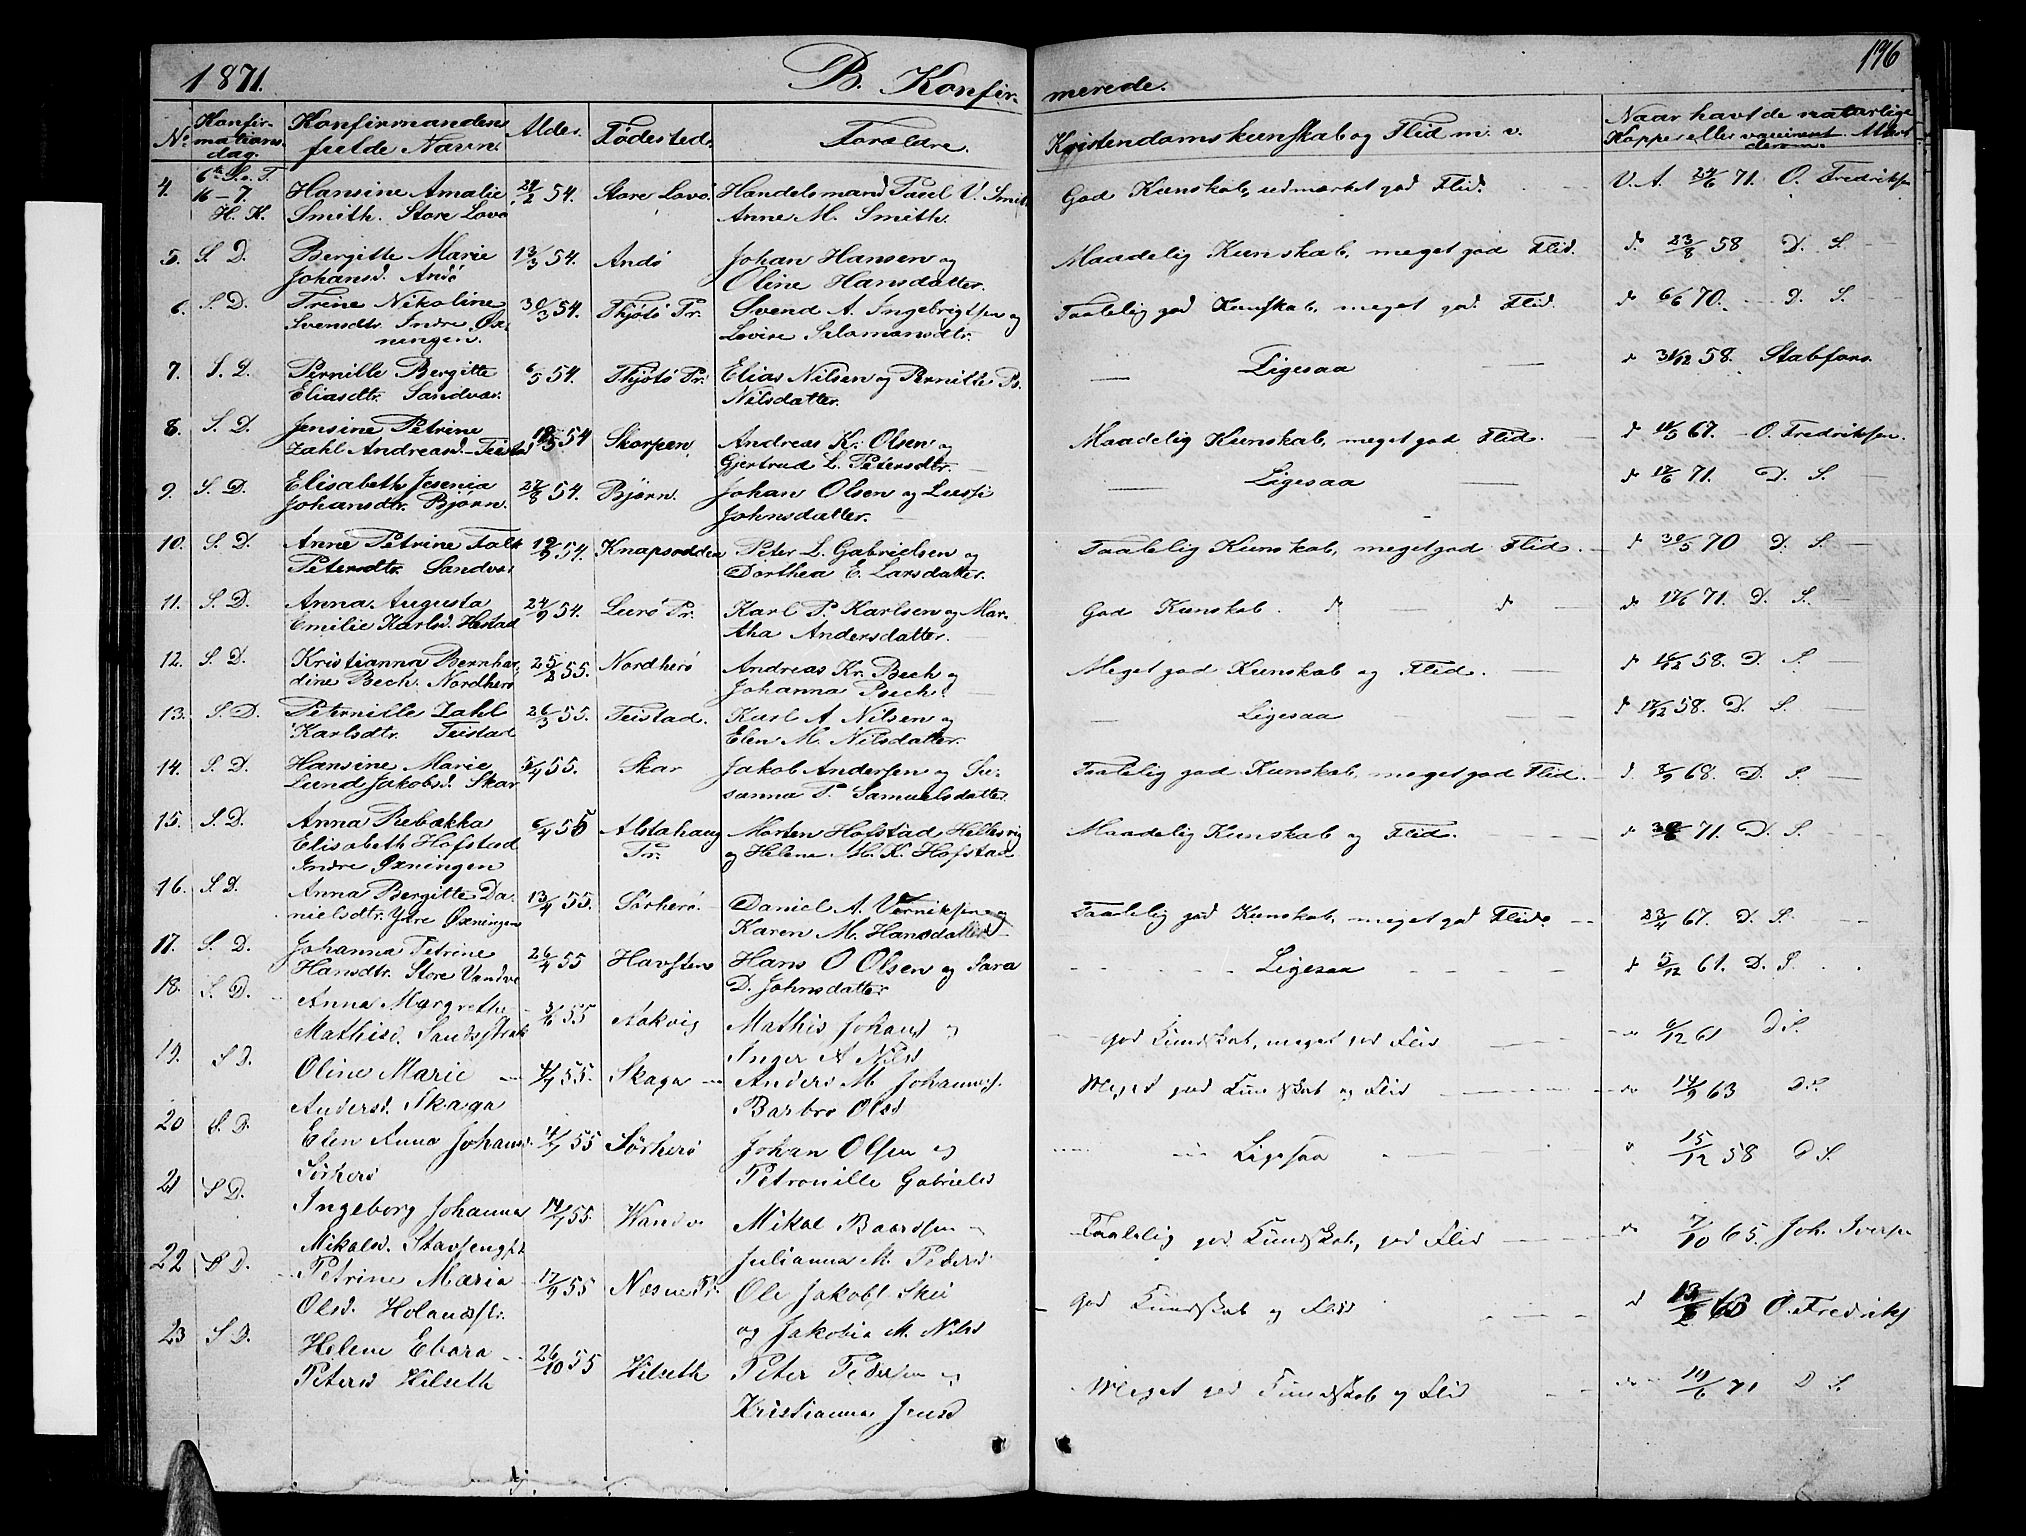 1871.
B. Konfir-
merede.
196
No
Konfir-
mations
dag.
Konfirmandens
fulde Navn.
Alder.
Fødested.
Forældre.
Kristendomskunskab og Flid m. v.
Naar havt de naturlige
Kopper eller vaccineret. Attest
derom.
4. 6te S. e. T.
16 - 7.
H. K.
Hansine Amalie
Smith. Store Lovø
2 54. Store Lovø.
Handelsmand Paul V. Smith
Anne M. Smith.
God Kunskab, udmærket god Flid.
V. A. 6 71. O. Fredriksen
5. S. D. Bergitte Marie
Johansd. Andø
13/3 54. Andø
Johan Hansen og
Oline Hansdatter.
Maadelig Kunskab, meget god Flid.
do 23/8 58 D. S.
6. S. D. Trine Nikoline
Svensdtr. Indre Øx-
ningen.
30/3 54. Thjøtø Pr.
Svend A. Ingebrigtsen og
Lovise Salamonsdtr.
Taalelig god Kunskab, meget god Flid.
do 6/6 70. D. S.
7. S. D. Pernille Bergitte
Eliasdtr. Sandvær.
6/5 54. Thjøtø Pr.
Elias Nilsen og Pernille B.
Nilsdatter.
Ligesaa
do 31/12 58. Stabfors.
8. S. D. Jensine Petrine
Zahl Andreasd. Teistad
54 Skorpen
Andreas Kr. Olsen og
Gjertrud L. Petersdtr.
Maadelig Kunskab, meget god Flid.
do 67. O. Fredriksen.
9. S. D. Elisabeth Jesenia
Johansdtr. Bjørn.
27/8 54. Bjørn.
Johan Olsen og Lussi
Johnsdatter.
Ligesaa
do 71. D. S.
10. S. D. Anne Petrine Falk
Petersdtr. Sandvær
19/9 54. Knapsodden
Peter L. Gabrielsen og
Dorthea E. Larsdatter.
Taalelig Kunskab, meget god Flid.
do 30/5 70 D. S.
11. S. D. Anna Augusta
Emilie Karlsd. Hestad
24/9 54. Lurø Pr.
Karl P. Karlsen og Mar-
tha Andersdatter.
God Kunskab. do do
do 17/6 71. D. S.
12. S. D. Kristianna Bernhar-
dine Bech. Nordherø
25/2 55. Nordherø
Andreas Kr. Bech og
Johanna Bech.
Meget god Kunskab og Flid.
do 58. D. S.
13. S. D. Peternille Zahl
Karlsdtr. Teistad
26/3 55. Teistad.
Karl A. Nilsen og
Elen M. Nilsdatter.
Ligesaa
do 17/12 58. D. S.
14. S. D. Hansine Marie
Lund Jakobsd. Skar
4 55. Skar
Jakob Andersen og Su-
sanna P. Samuelsdatter
Taalelig god Kunskab, meget god Flid.
do 68. D. S.
15. S. D. Anna Rebækka
Elisabeth Hofstad
Indre Øxningen
6/4 55 Alstahaug
Pr.
Morten Hofstad Hellesvig
og Helene M. K. Hofstad
Maadelig Kunskab og Flid.
do 71. D. S.
16. S. D. Anna Bergitte Da-
nielsdtr. Ytre Øxningen
13/4 55. Sørherø.
Daniel A. Verniksen og
Karen M. Hansdatter
Taalelig god Kunskab, meget god Flid.
23/4 67. D. S.
17. S. D. Johanna Petrine
Hansdtr. Store Vandve
26/4 55 Havsten
Hans O Olsen og Sara
D. Johnsdatter
Ligesaa
do 5/12 61. D. S.
18. S. D. Anna Margrethe
Mathisd. Sandstrak
3/6 55 Aakvig
Mathis Johans og
Inger A Nilsd
god Kundskab, meget god Flid
6/12 61 D S.
19. S D. Oline Marie
Andersd. Skaga
4/7 55. Skaga
Anders M. Johannes.
Barbro Olsd
Meget god Kundskab og Flid
14/9 63 D. S.
20 S. D. Elen Anna Johansd.
Sørherø
4/7 55 Sørherø
Johan Olsen og
Petronille Gabrielsd
Ligesaa
15/12 58 D S.
21 S D. Ingeborg Johanna
Mikalsd. Stavsengst
14/7 55. Wandve
Mikal Baardsen
Julianna M. Pedersd
Taalelig god Kundskab, god Flid
7/10 65. Joh. Iversen
22 S D. Petrine Maria
Olsd. Holandsstr.
17/9 55 Næsne Pr.
Ole Jakobs. Skei
og Jakobia M. Nilsd
God Kundskab og Flid
O. Fredriks
23 S D. Helene Ebara
Petersd Hilseth
26/10 55 Hilseth
Peter Pedersen og
Kristianna Jensd
Meget god Kundskab og Flid
19/6 71 D S.